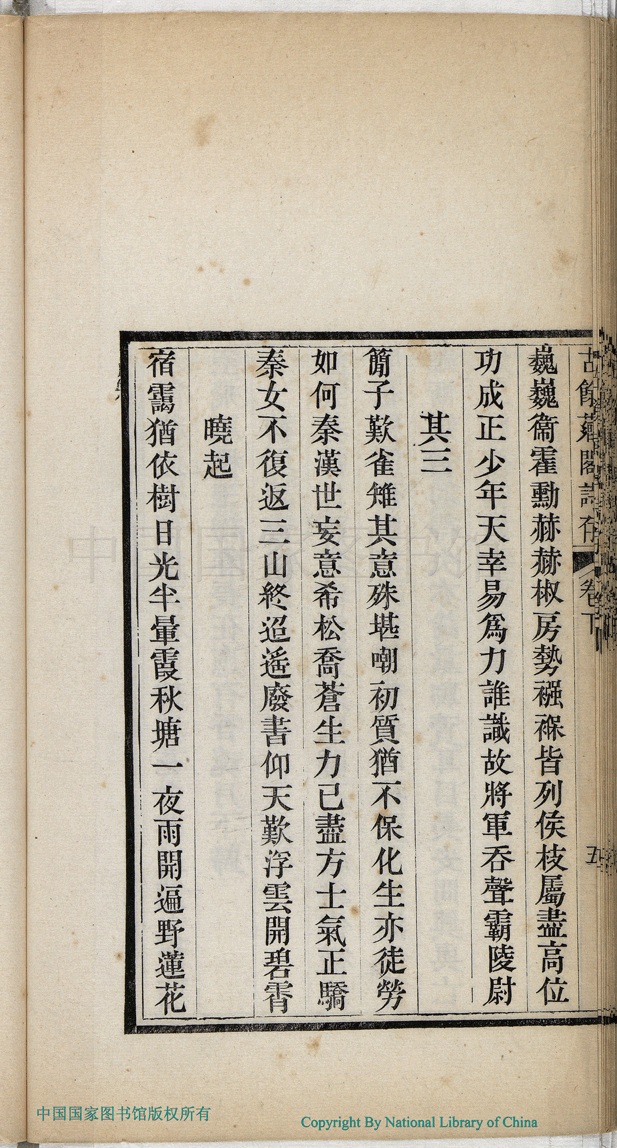 古餘薌閣詩存 卷下 五
巍巍衞霍勳赫赫椒房勢襁褓皆列侯枝屬盡高位
功成正少年天幸易爲力誰識故將軍吞聲霸陵尉
其三
簡子歎雀雉其意殊堪嘲初質猶不保化生亦徒勞
如何秦漢世妄意希松喬蒼生力已盡方士氣正驕
秦女不復返三山終迢遙廢書仰天歎浮雲開碧霄
曉起
宿靄猶依樹日光半暈霞秋塘一夜雨開遍野蓮花
中国国家图书馆版权所有
Copyright By National Library of China